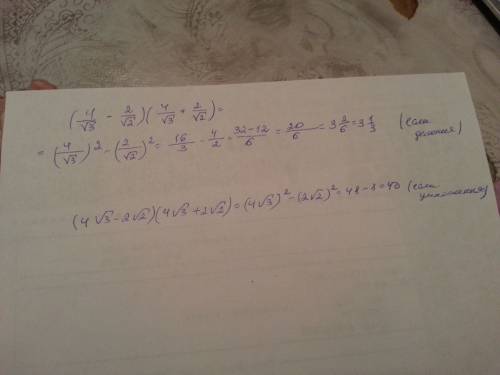 (4/√3 - 2/√2)(4/√3 + 2/√2) =
= (4/√3)² - (2/√2)² = 16/3 - 4/2 = 32-12/6 = 20/6 = 3 2/6 = 3 1/3 (если деление)
(4√3 - 2√2)(4√3 + 2√2) = (4√3)² - (2√2)² = 48 - 8 = 40 (если умножение)